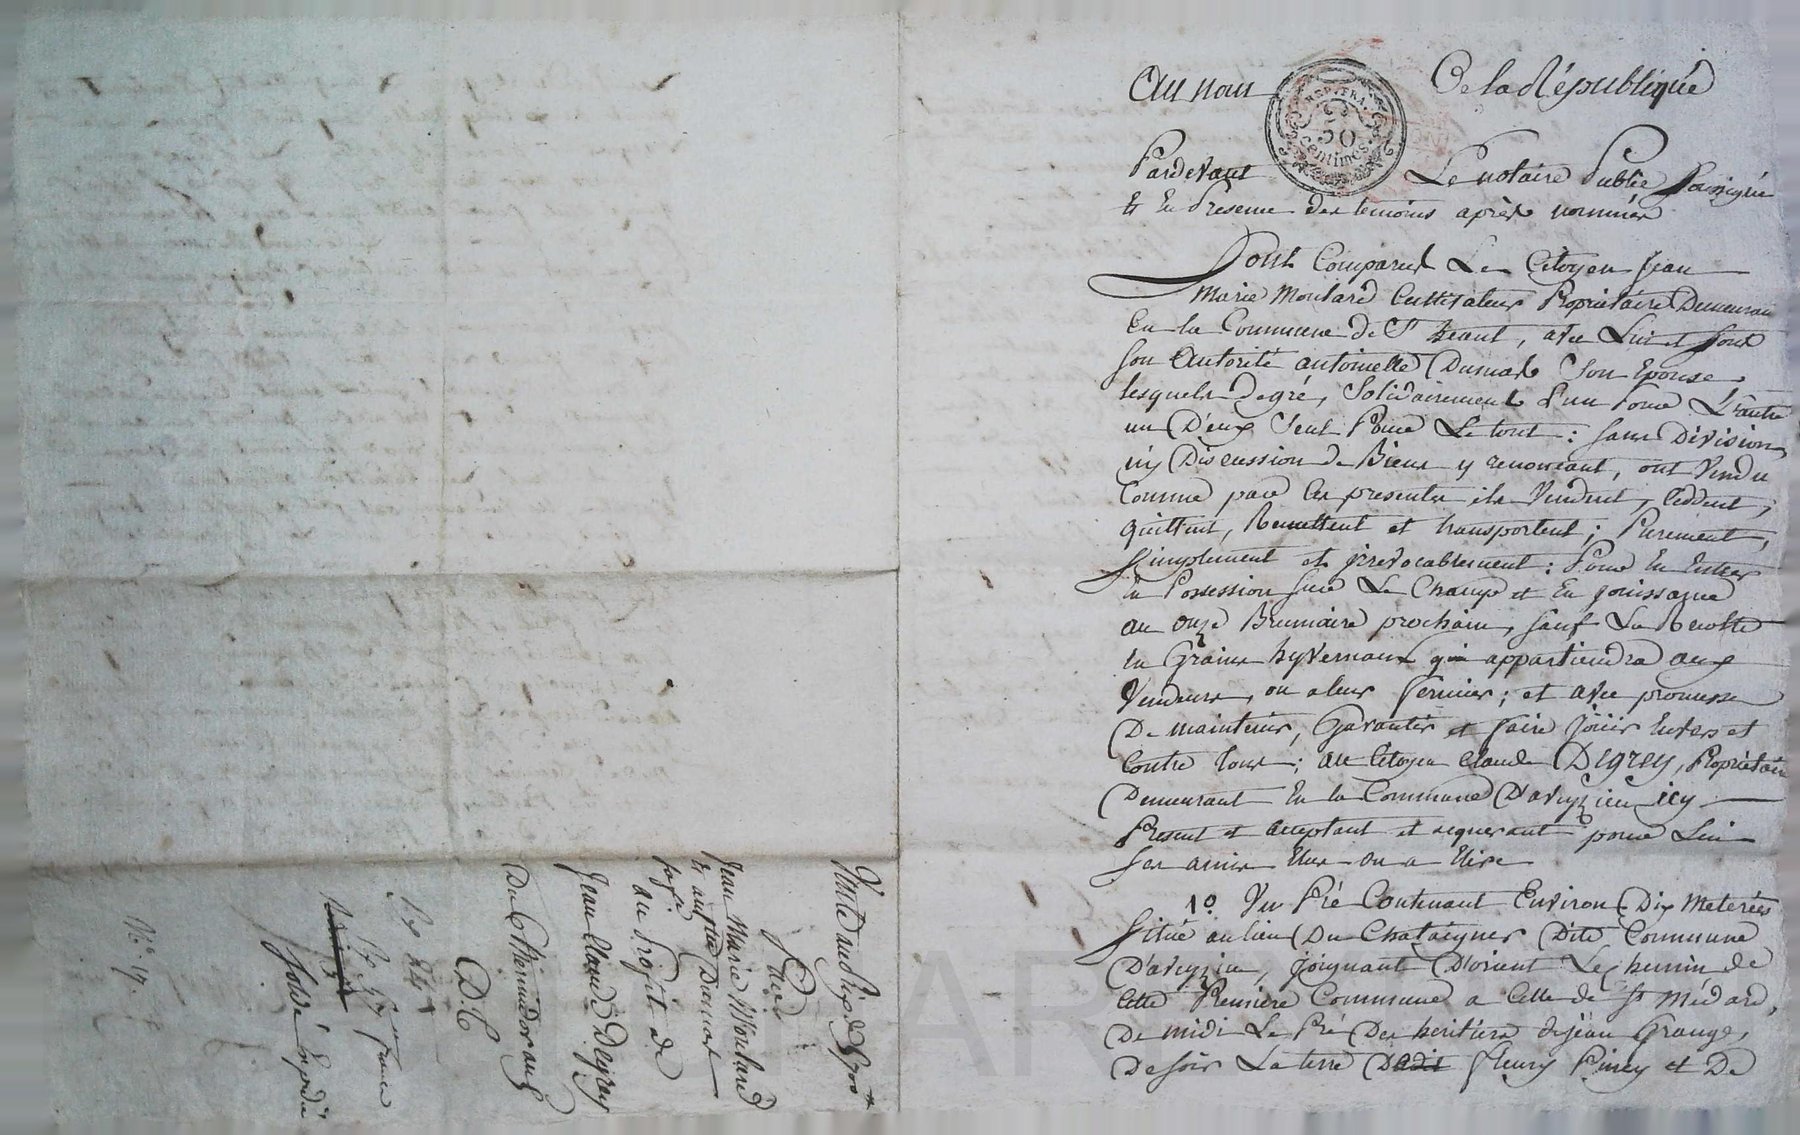 Au nom De la République
REP. FRA.
50
centimes
Pardevant Le notaire Public soussigné
Et En Presence des temoins après nommés
Sont Comparus Le Citoyen Jean
Marie Moulard Cultivateur Propriétaire Demeurant
En la Commune de St heant, avec Lui et sous
son Autorité antoinette Dumas son Epouse
lesquels de gré, Solidairement l'un Pour L'autre
un D'eux seul Pour Le tout : sans Division
ny Discussion de Biens y renoncant, ont Vendu
Comme par les presentes ils Vendent, Ceddent,
quittent, Remettent et transportent ; Purement,
simplement et irrevocablement : Pour En Entrer
En Possession sur Le Champ et En jouissance
au onze Brumaire prochain, sauf La Recolte
En Grains hyvernaux qui appartiendra aux
Vendeurs, ou a leur fermier ; et avec promesse
De maintenir, Garantir et faire Joüir Envers et
Contre tous ; au Citoyen Claude DEGREY, Propriétaire
Demeurant En la Commune D'aveyzieu icy
Present et acceptant et requerant pour Lui
ses amis Elus ou a Elire
1° Un Pré Contenant Environ Dix Meterées
situé au lieu Du Chataigner Dite Commune
D'aveyzieu, joignant D'orient Le chemin de
Cette Premiere Commune a Celle de St Médard,
De midi Le Pré Des heritiers de jean Grange,
De soir La terre Dudit fleury Piney et De
Vente au Prix de
Jean Marie Moulard
Et antoinette Dumas
au Profit de
Jean Claude Degrey
Du Thermidor an
D. C.
Soldé Expédié
N° 17.